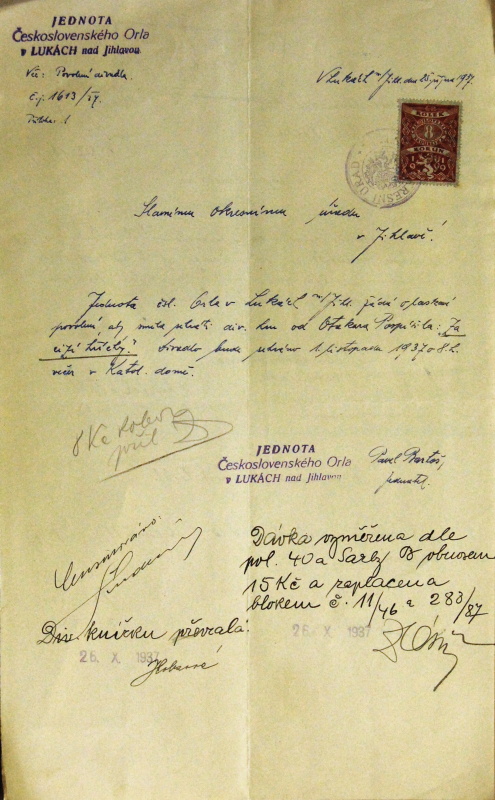 JEDNOTA
Československého Orla
v LUKÁCH nad Jihlavou
Věc: Povolení divadla.
E.j. 1613/37.
V Lukách n/Jihl. dne 25 října 1937.
KOLEK
8
KORUN
1919
OKRESNÍ ÚŘAD
Slavnému okresnímu úřadu
v Jihlavě!
Jednota čsl. Orla v Lukách n/Jihl. žádá o laskavé
povolení, aby směla sehráti div. hru od Otakara Pospíšila: "Za
cizí hříchy." Divadlo bude sehráno 1. listopadu 1937 o 8 h.
večer v Katol. domě.
8 Kč kolek
JEDNOTA
Československého Orla
v LUKÁCH nad Jihlavou
Pavel Bartoš,
jednatel.
Censurováno:
Dávka vyměřena dle
pol. 40a Sazby B obnosem
15 Kč a zaplacena
blokem č. 11/46 a 283/37
Div. knížku převzala:
26. X. 1937
26. X. 1937